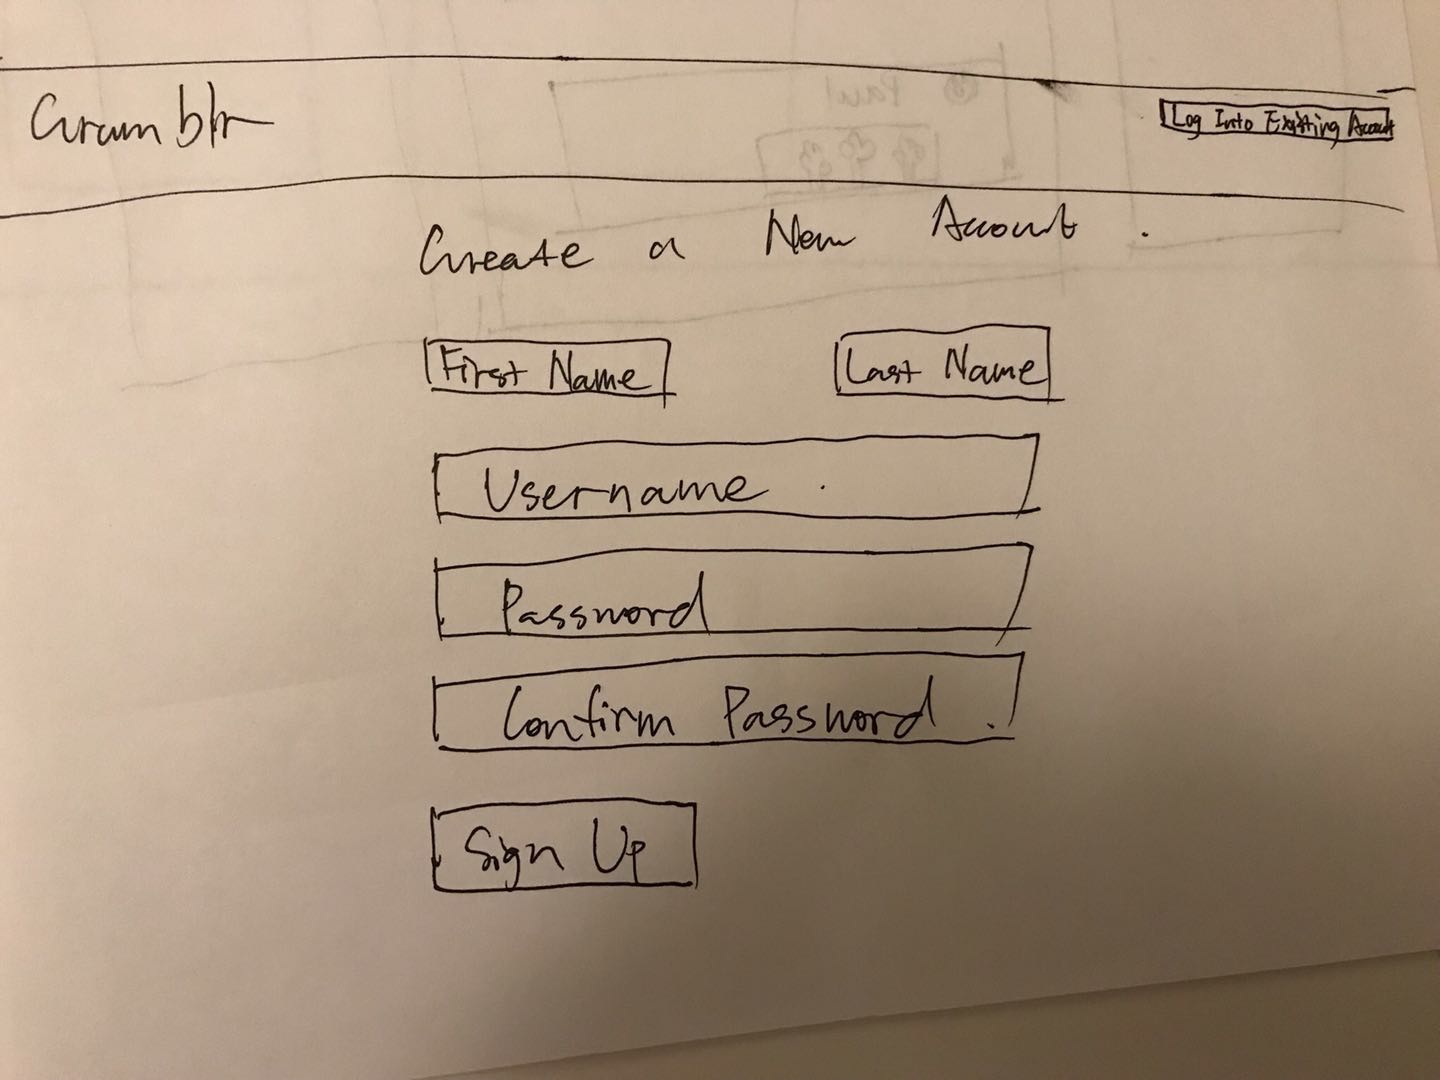 Grumblr
Log Into Existing Account
Create a New Account.
First Name
Last Name
Username
Password
Confirm Password
Sign Up
Paul